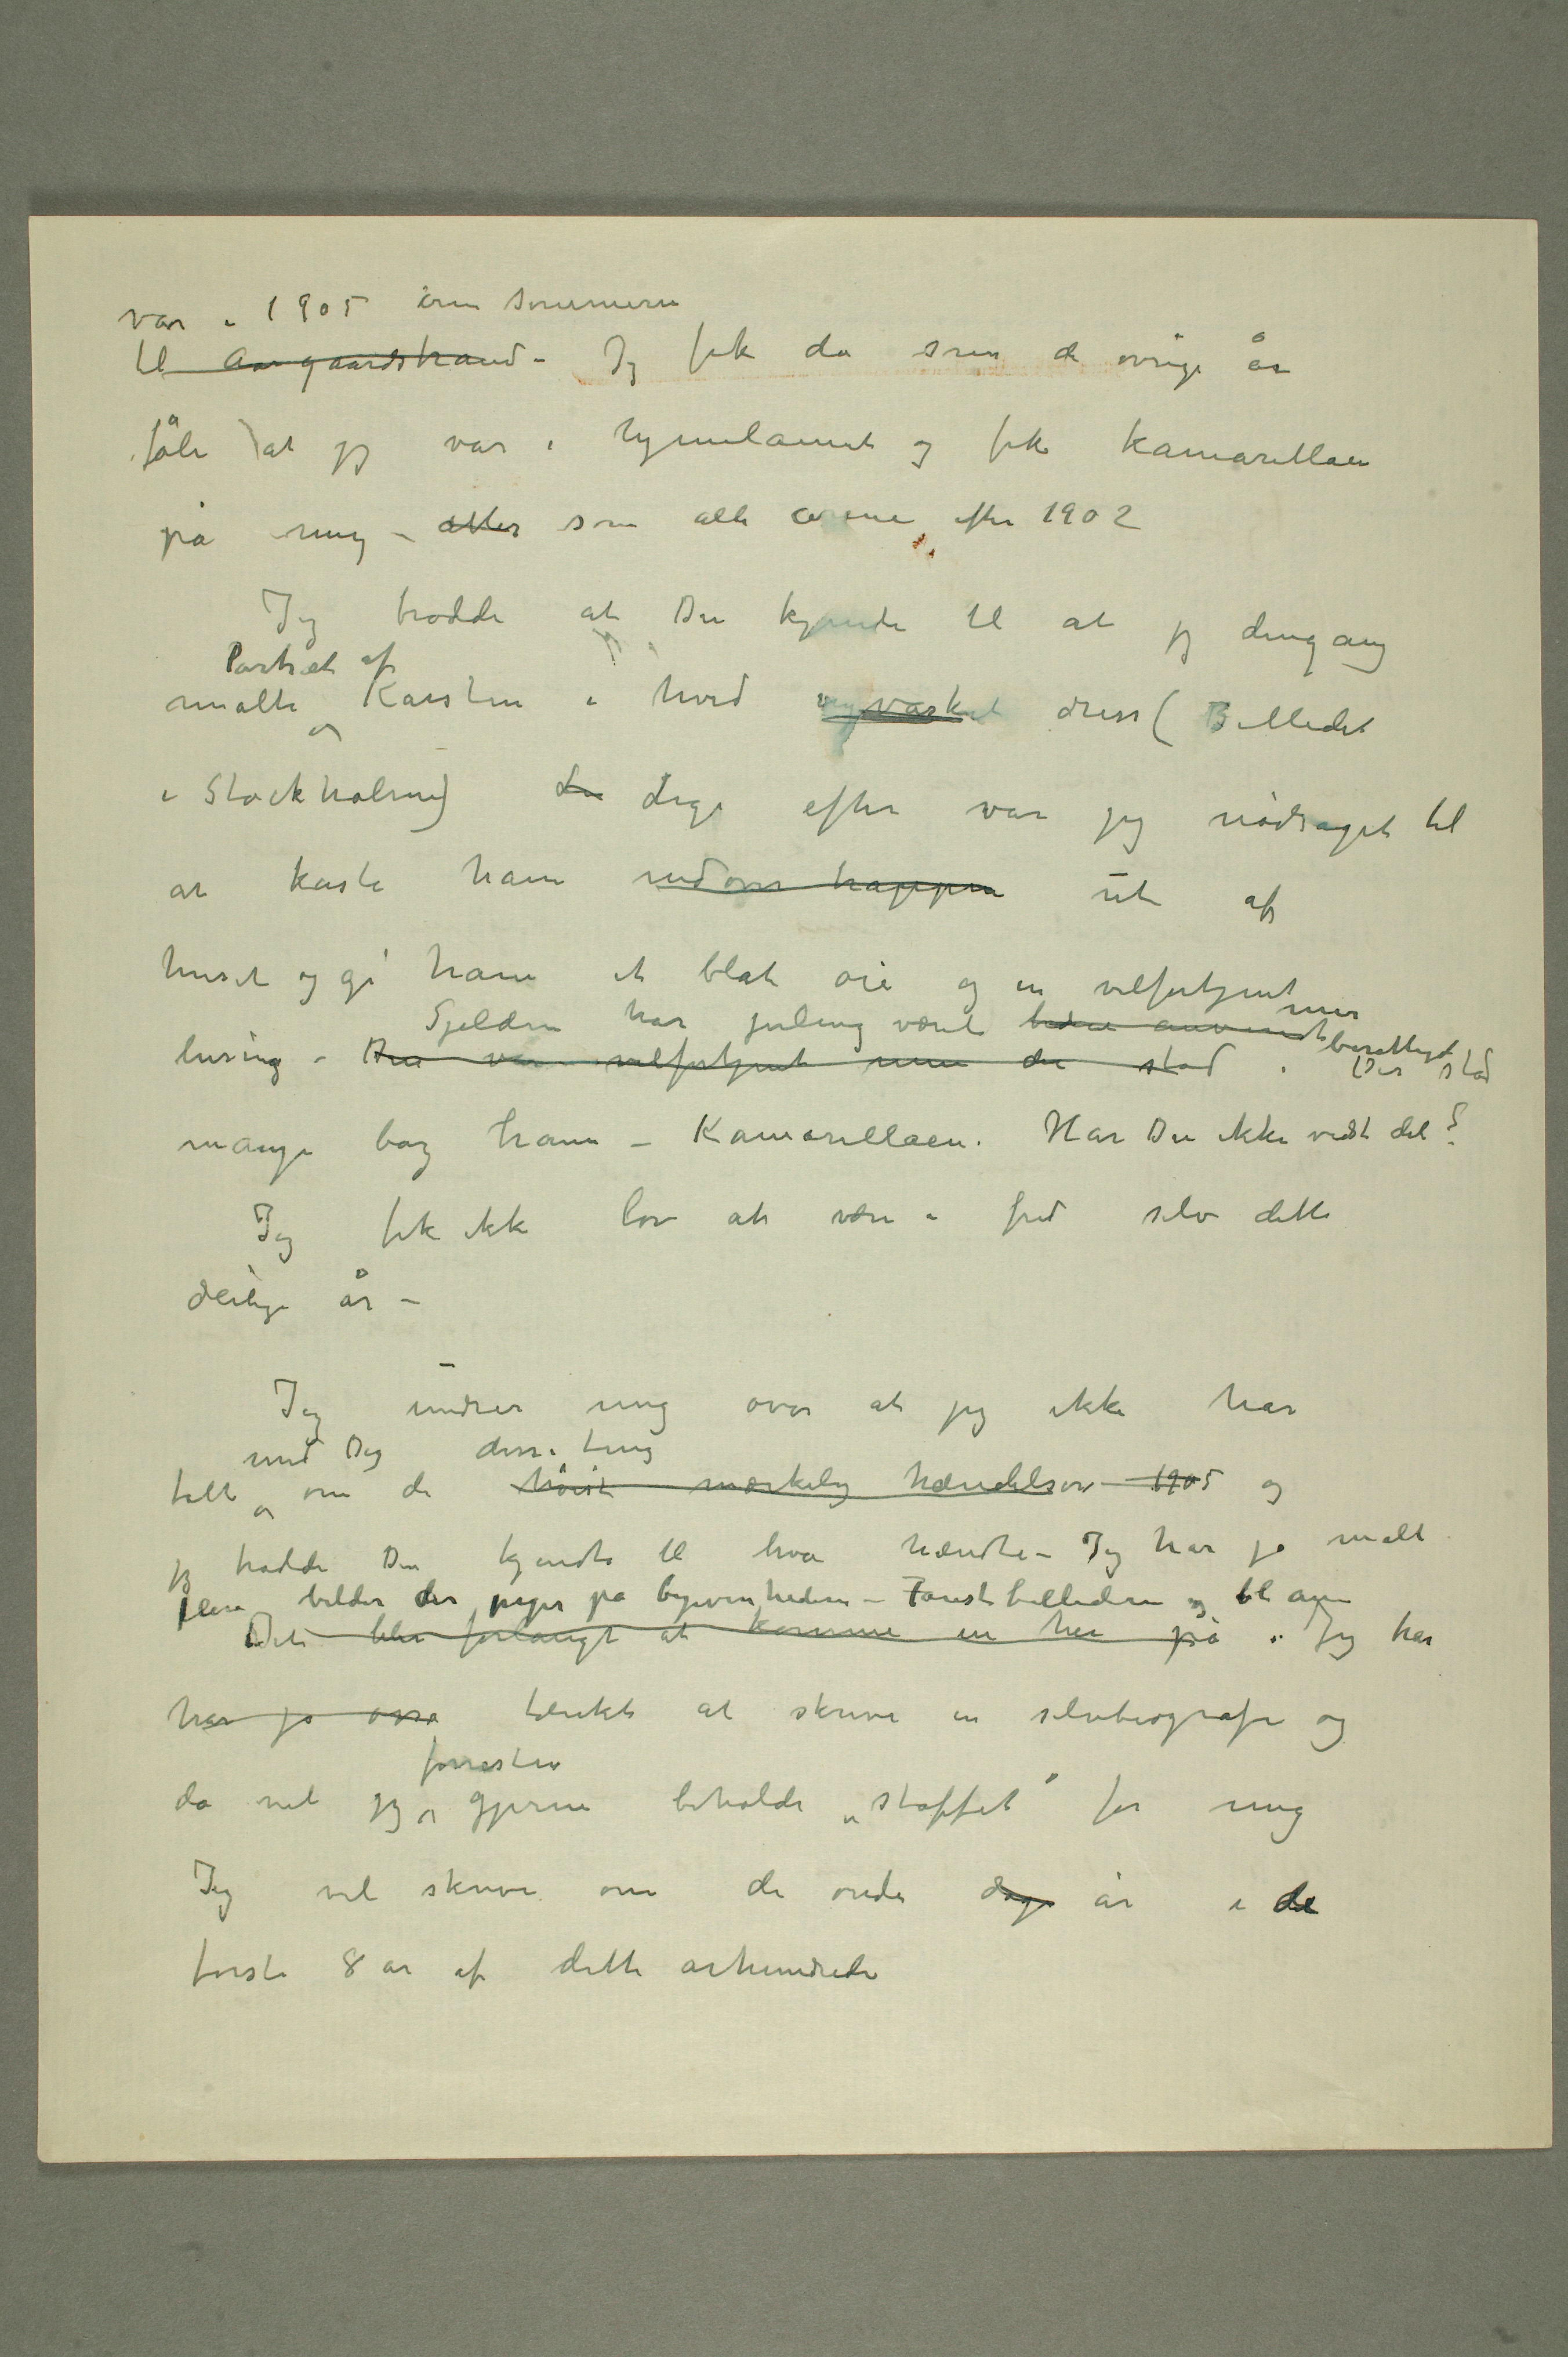 var i 1905 om sommeren
til Aasgaardstrand – Jeg fik da som de øvrige år
føle at jeg var i hjemlandet og fik kamarillaen
på mig – atter som alle årene efter 1902
Jeg trodde at Du kjendte til at jeg dengang
Portræt af
malte Karsten i hvid nyvasket dress (Billedet
i Stockholm) Lige efter var jeg nødsaget til
at kaste ham nedover trappen ut af
huset og gi ham et blåt øie og en velfortjent
Sjelden har juling været bedre anvendt mer
lusing – Den var velfortjent men der stod. berettiget Der stod
mange bag ham – Kamarillaen. Har Du ikke vidst det?
Jeg fik ikke lov at være i fred selv dette
deilige år –
Jeg undrer mig over at jeg ikke har
med Dig disse ting
talt om de høist mærkelig hændelser 1905 og
jeg trodde Du kjendte til hva hændte – Jeg har jo malt
flere bilder der peger på begivenheden – Faustbilledene og bl a
Det blir forlangt at komme in her på. Jeg har
har jo osså tænkt at skrive en selvbiografi og
forresten
da vil jeg gjerne beholde „stoffet" for mig
Jeg vil skrive om de onde dage år i de
første 8 år af dette århundrede